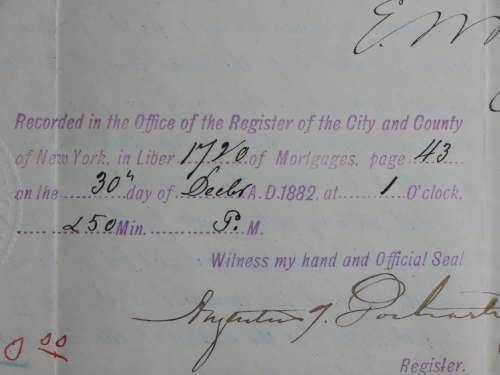 E. W
Recorded in the Office of the Register of the City and County
of New York, in Liber 1720 of Mortgages, page 43
on the 30" day of Decbr A.D. 1882, at 1 O'clock.
&50 Min. P. M.
Witness my hand and Official Seal
Augustus T. Docharty
Register.
00